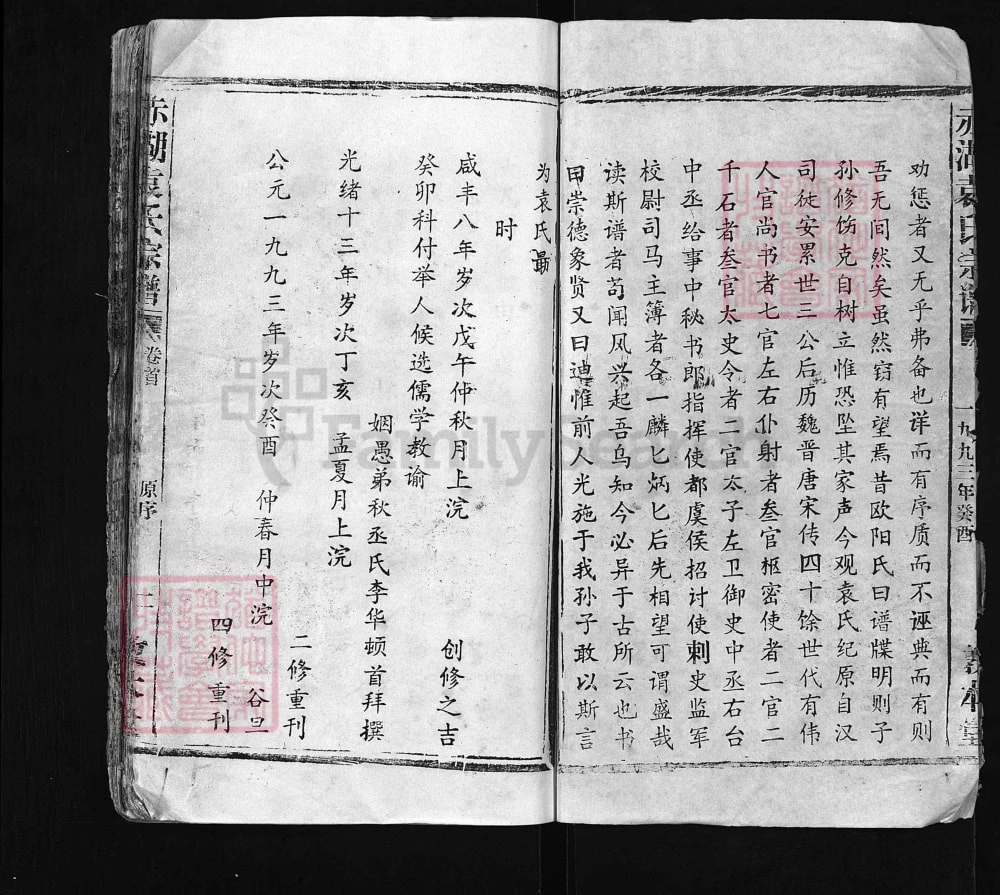 赤湖袁氏宗谱
一九九三年癸酉
劝惩者又无乎弗备也详而有序质而不诬典而有则
吾无间然矣虽然窃有望焉昔欧阳氏曰谱牒明则子
孙修饬克自树立惟恐坠其家声今观袁氏纪原自汉
司徒安累世三公后历魏晋唐宋传四十馀世代有伟
人官尚书者七官左右仆射者叁官枢密使者二官二
千石者叁官太史令者二官太子左卫御史中丞右台
中丞给事中秘书郎指挥使都虞侯招讨使刺史监军
校尉司马主簿者各一麟匕炳匕后先相望可谓盛哉
读斯谱者苟闻风兴起吾乌知今必异于古所云也书
曰崇德象贤又曰迪惟前人光施于我孙子敢以斯言
为袁氏勗
时
咸丰八年岁次戊午仲秋月上浣 创修之吉
癸卯科付举人候选儒学教谕
姻愚弟秋丞氏李华顿首拜撰
光绪十三年岁次丁亥 孟夏月上浣
二修重刊
公元一九九三年岁次癸酉 仲春月中浣 谷旦
四修重刊
赤湖袁氏宗谱
卷首
原序
FamilySearch